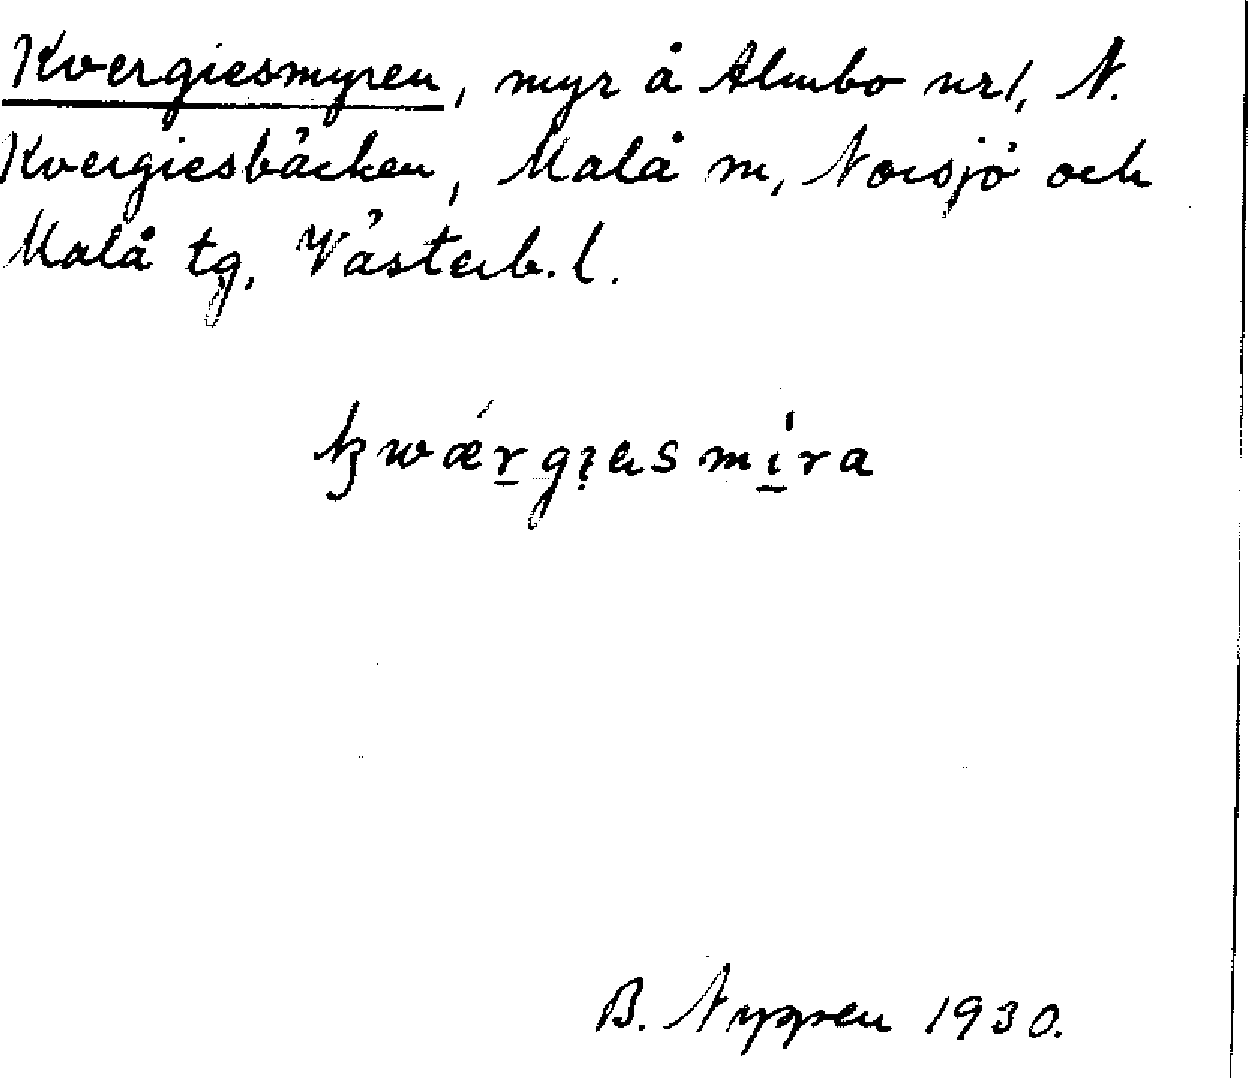 Kvergiesmyren, myr å Almbo nr 1, N.
Kvergiesbäcken, Malå sn, Norsjö och
Malå tg, Västerb. l.
B. Nygren 1930.